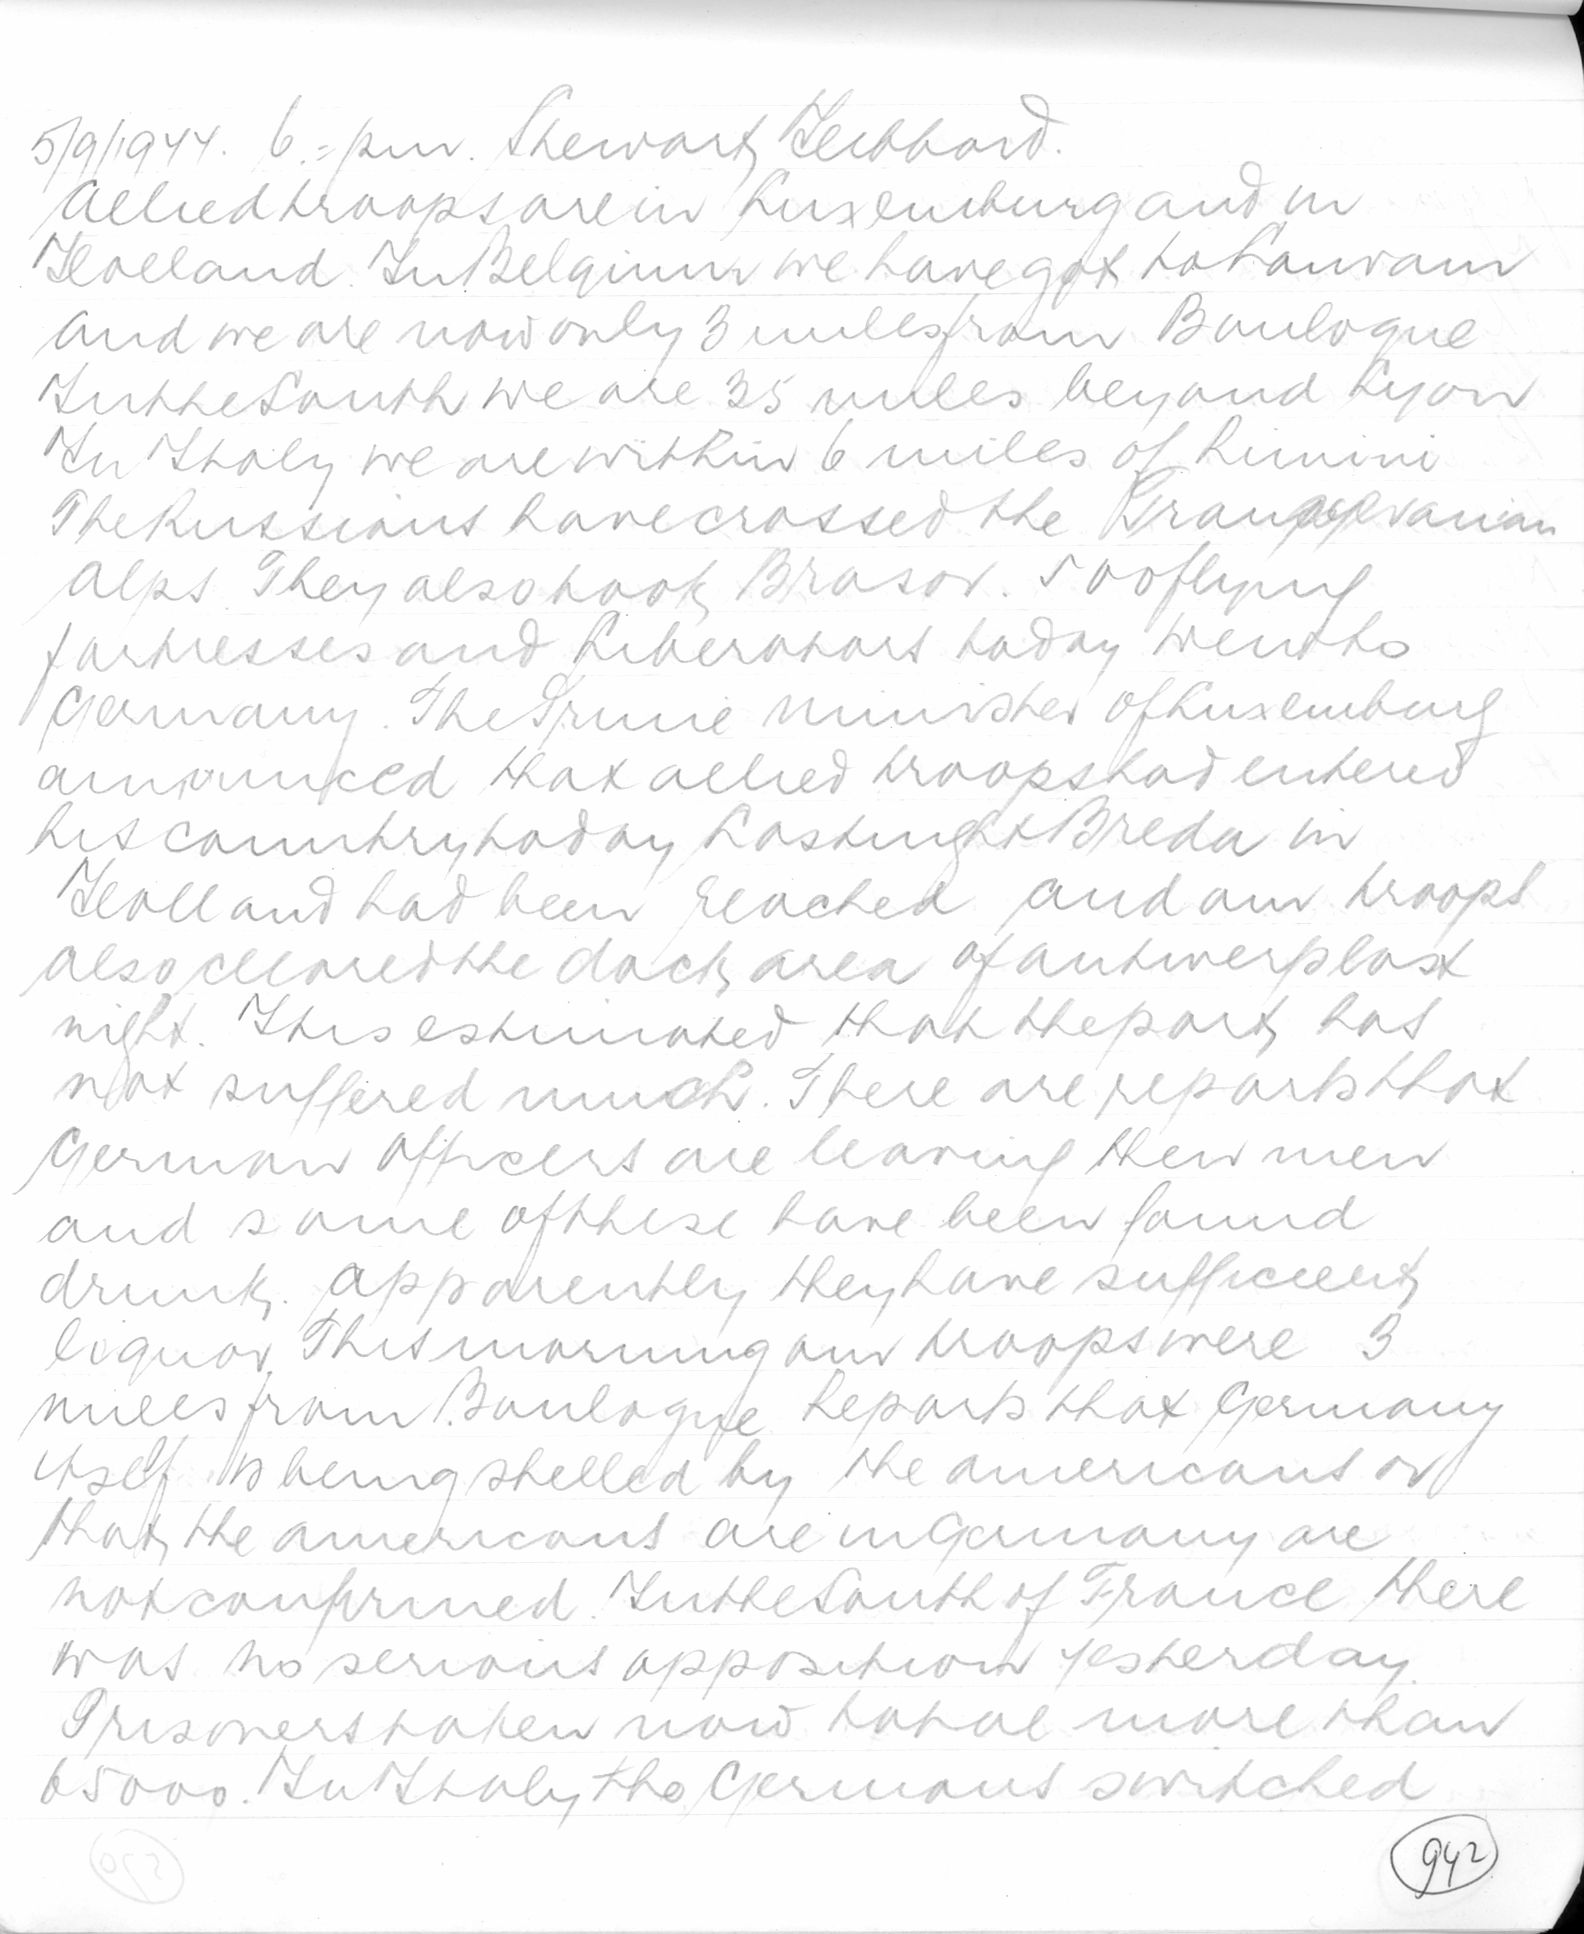 5/9/1944. 6.= pm. Stewart Hibberd.
Allied troops are in Luxemburg and in
Holland. In Belgium we have got to Louvain
and we are now only 3 miles from Boulogne
In the South we are 35 miles beyond Lyon
In Italy we are within 6 miles of Rimini
The Russians have crossed the Transylvanian
Alps. They also took Brasov. 500 flying
fortresses and Liberators today went to
Germany. The Prime Minister of Luxemburg
announced that allied troops had entered
his country today Last night Breda in
Holland had been reached and our troops
also cleared the dock area of Antwerp last
night. It is estimated that the port has
not suffered much. There are reports that
German Officers are leaving their men
and some of these have been found
drunk. Apparently they have sufficient
liquor. This morning our troops were 3
miles from Boulogne Reports that Germany
itself is being shelled by the americans or
that the americans are in Germany are
not confirmed. In the South of France there
was no serious opposition yesterday.
Prisoners taken now total more than
65000. In Italy the Germans switched
942